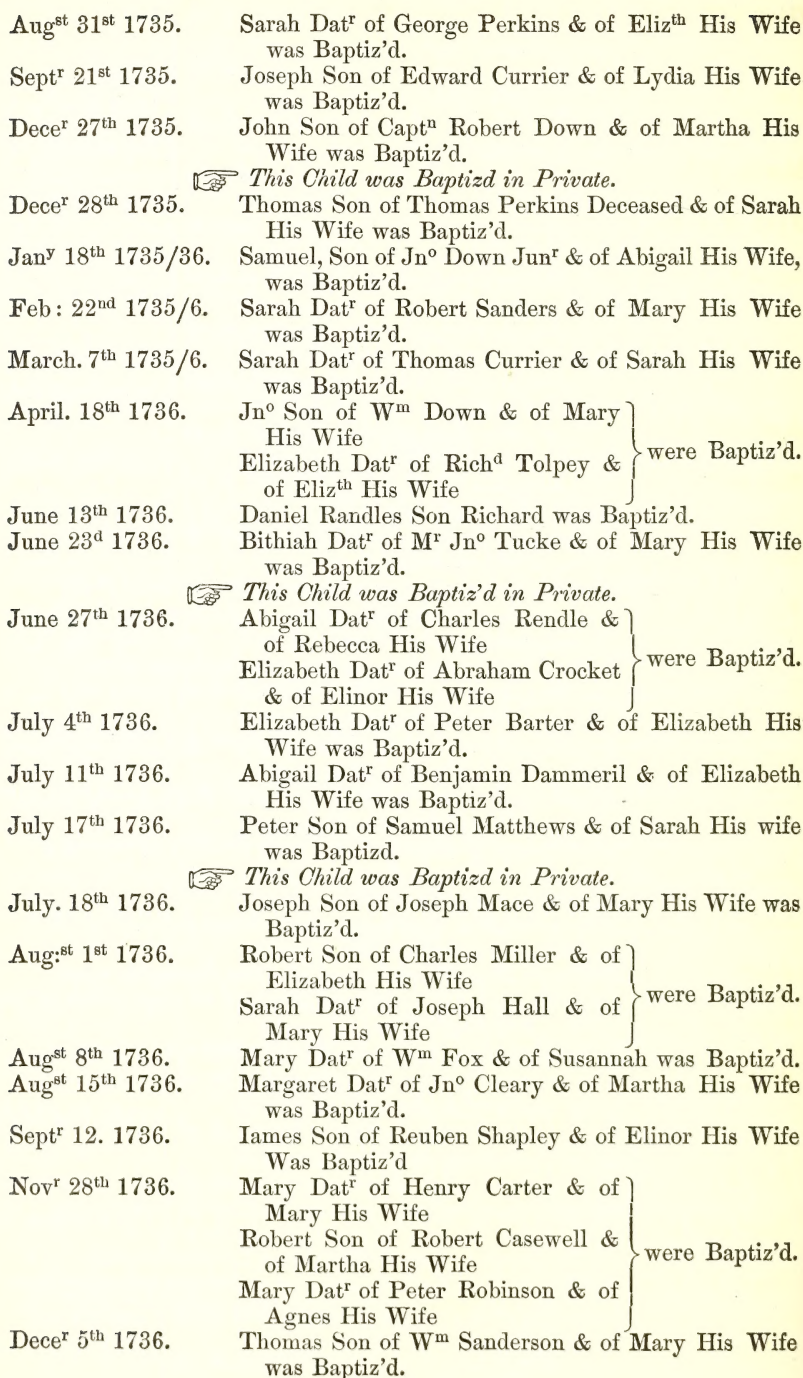 Augst 31st 1735. Sarah Datr of George Perkins & of Elizth His Wife
was Baptiz'd.
Septr 21st 1735. Joseph Son of Edward Currier & of Lydia His Wife
was Baptiz'd.
Decer 27th 1735. John Son of Captn Robert Down & of Martha His
Wife was Baptiz'd.
☞ This Child was Baptizd in Private.
Decer 28th 1735. Thomas Son of Thomas Perkins Deceased & of Sarah
His Wife was Baptiz'd.
Jany 18th 1735/36. Samuel, Son of Jno Down Junr & of Abigail His Wife,
was Baptiz'd.
Feb: 22nd 1735/6. Sarah Datr of Robert Sanders & of Mary His Wife
was Baptiz'd.
March. 7th 1735/6. Sarah Datr of Thomas Currier & of Sarah His Wife
was Baptiz'd.
April. 18th 1736. Jno Son of Wm Down & of Mary
His Wife
were Baptiz'd.
Elizabeth Datr of Richd Tolpey &
of Elizth His Wife
June 13th 1736. Daniel Randles Son Richard was Baptiz'd.
June 23d 1736. Bithiah Datr of Mr Jno Tucke & of Mary His Wife
was Baptiz'd.
☞ This Child was Baptiz'd in Private.
June 27th 1736. Abigail Datr of Charles Rendle &
of Rebecca His Wife
were Baptiz'd.
Elizabeth Datr of Abraham Crocket
& of Elinor His Wife
July 4th 1736. Elizabeth Datr of Peter Barter & of Elizabeth His
Wife was Baptiz'd.
July 11th 1736. Abigail Datr of Benjamin Dammeril & of Elizabeth
His Wife was Baptiz'd.
July 17th 1736. Peter Son of Samuel Matthews & of Sarah His wife
was Baptizd.
☞ This Child was Baptizd in Private.
July. 18th 1736. Joseph Son of Joseph Mace & of Mary His Wife was
Baptiz'd.
Aug:st 1st 1736. Robert Son of Charles Miller & of
Elizabeth His Wife
were Baptiz'd.
Sarah Datr of Joseph Hall & of
Mary His Wife
Augst 8th 1736. Mary Datr of Wm Fox & of Susannah was Baptiz'd.
Augst 15th 1736. Margaret Datr of Jno Cleary & of Martha His Wife
was Baptiz'd.
Septr 12. 1736. Iames Son of Reuben Shapley & of Elinor His Wife
Was Baptiz'd
Novr 28th 1736. Mary Datr of Henry Carter & of
Mary His Wife
Robert Son of Robert Casewell &
of Martha His Wife
were Baptiz'd.
Mary Datr of Peter Robinson & of
Agnes His Wife
Decer 5th 1736. Thomas Son of Wm Sanderson & of Mary His Wife
was Baptiz'd.